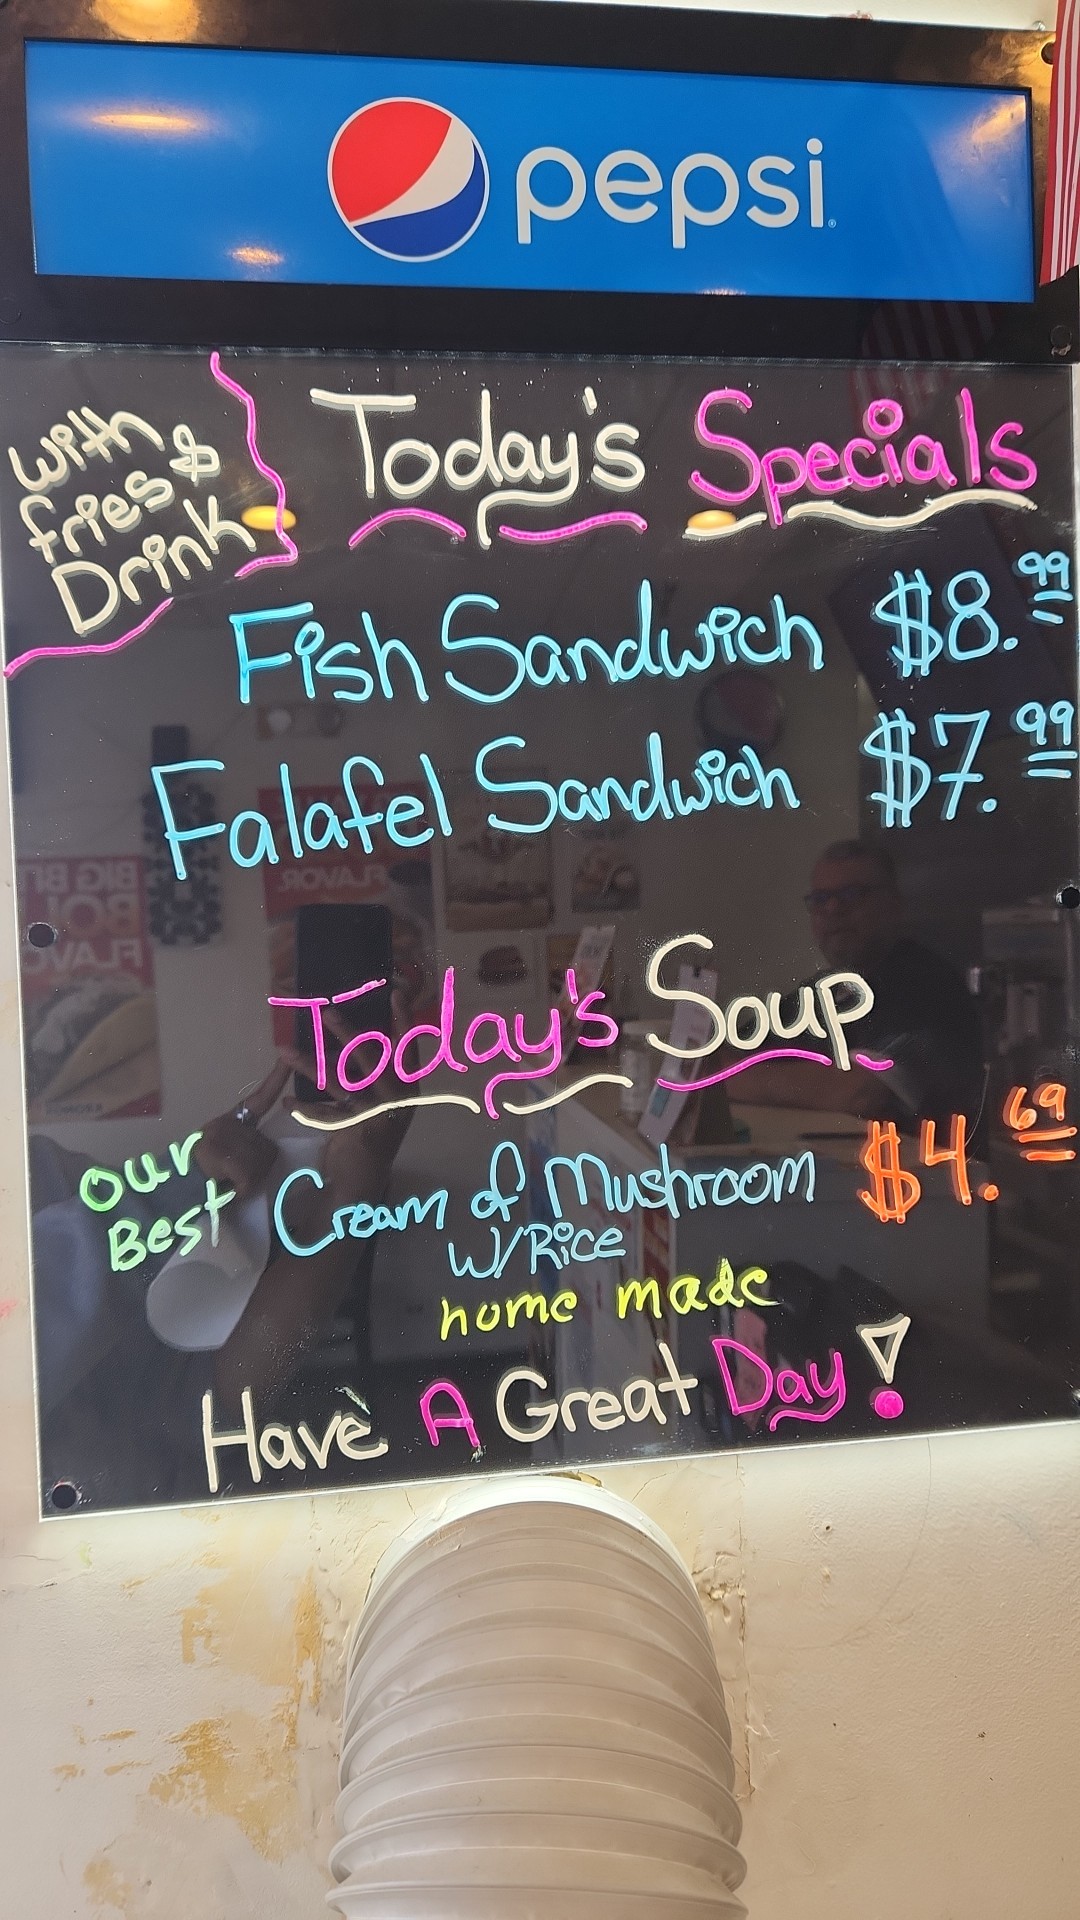 pepsi
with
fries &
Drink
Today's Specials
Fish Sandwich $8.99
Falafel Sandwich $7.99
Today's Soup
Our
Best
Cream of Mushroom $4.69
W/Rice
home made
Have A Great Day!
BIG
BOL
FLAVO
FLAVOR.